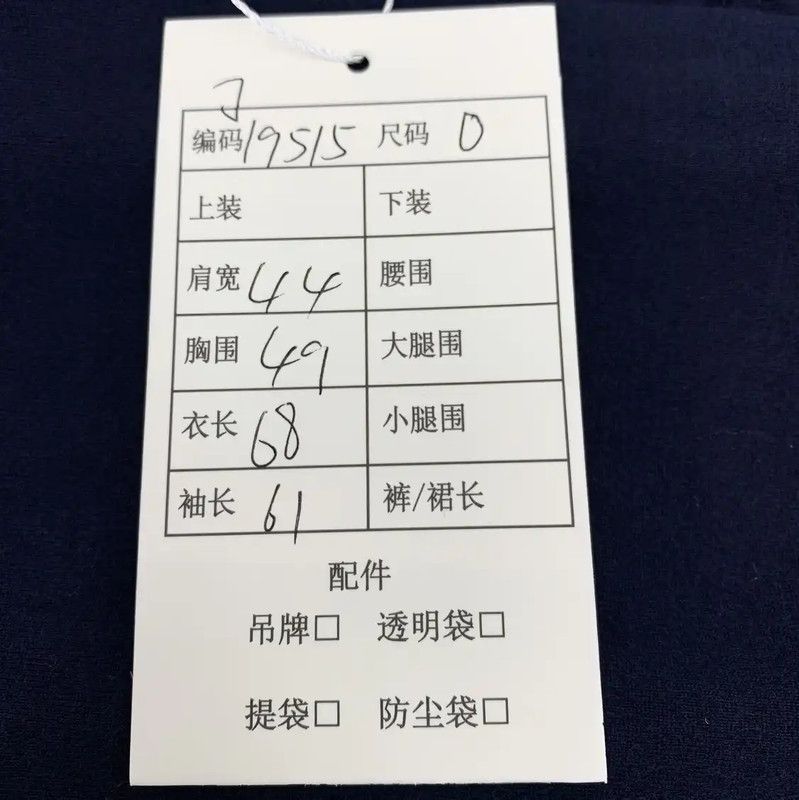 编码 19515 尺码 0
上装 下装
肩宽 44 腰围
胸围 49 大腿围
衣长 68 小腿围
袖长 61 裤/裙长
配件
吊牌□ 透明袋□
提袋□ 防尘袋□